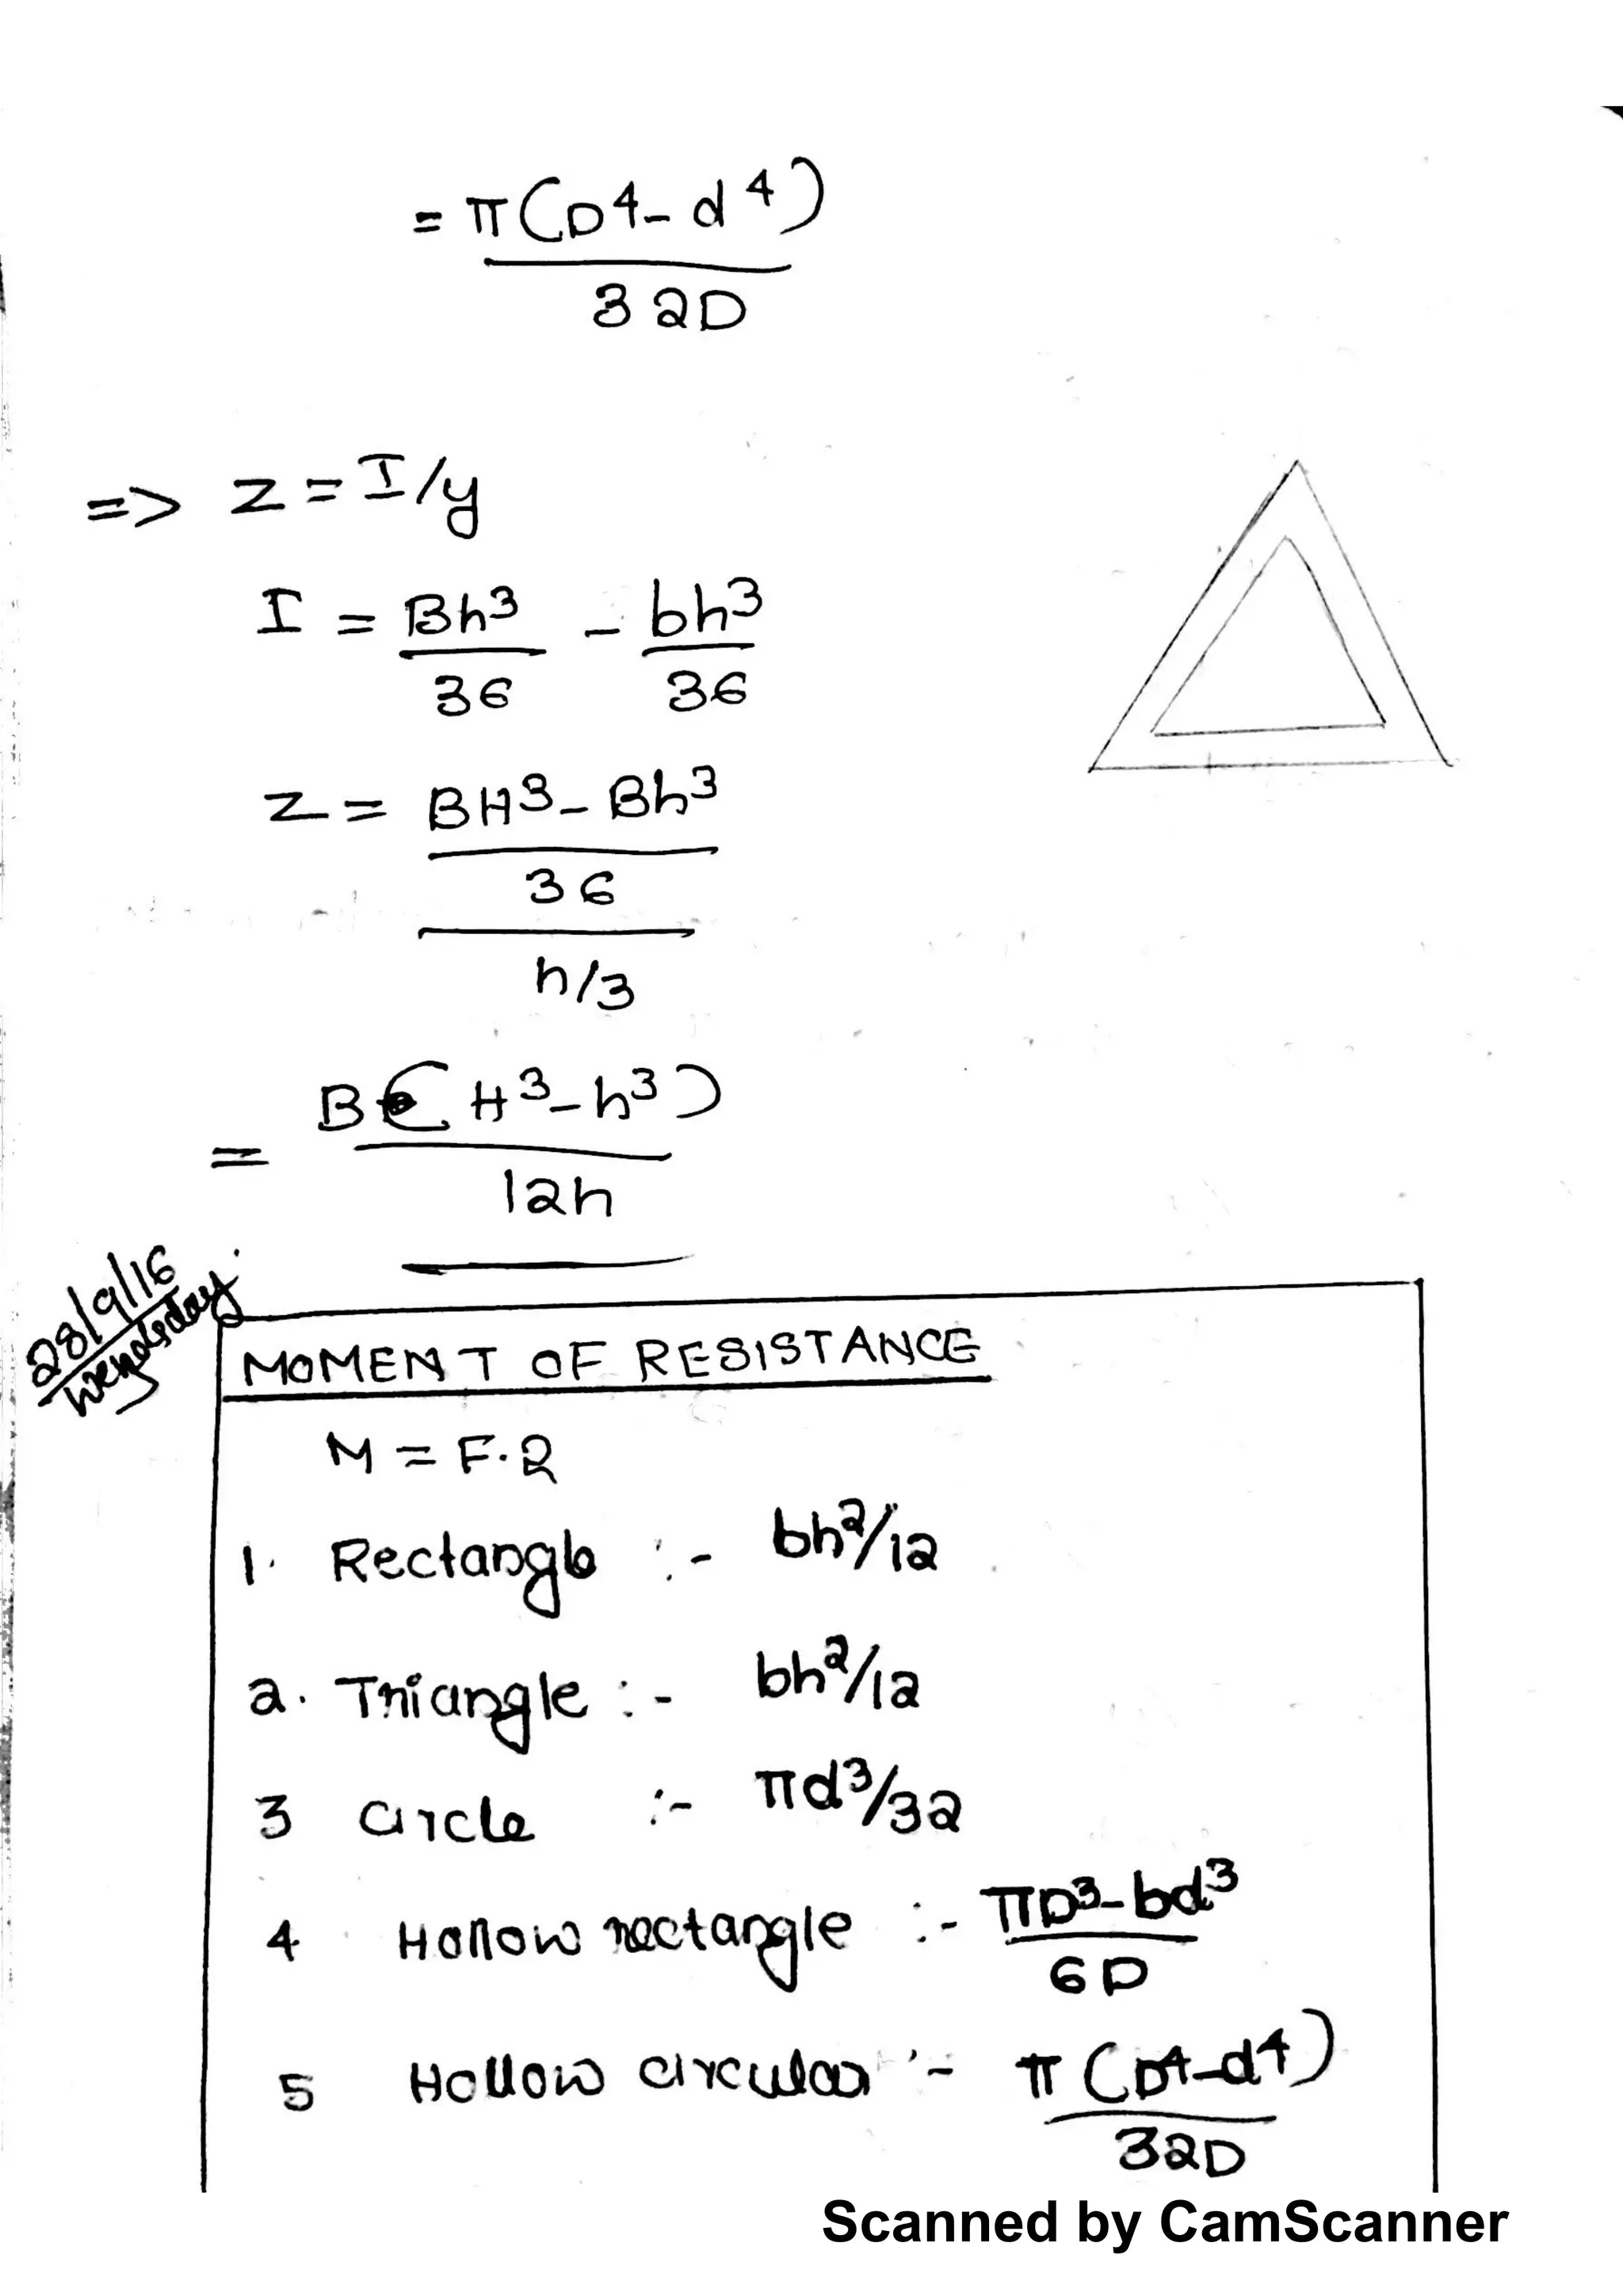 = π(D⁴ - d⁴)
32D
=> Z = I/y
I = Bh³/36 - bh³/36
Z = BH³ - Bh³
36
h/3
= B(H³ - h³)
12h
28/9/16
MOMENT OF RESISTANCE
M = F.Z
1. Rectangle :- bh²/12
2. Triangle :- bh²/12
3 Circle :- πd³/32
4 Hollow rectangle :- πD³ - bd³
6D
5 Hollow circular :- π(D⁴ - d⁴)
32D
Scanned by CamScanner